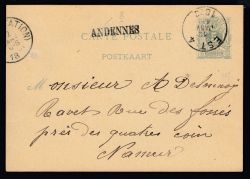 ANDENNES
CARTE POSTALE
POSTKAART
Monsieur A Delminoy
Ravet Rue des fossés
près des quatres coin
Namur